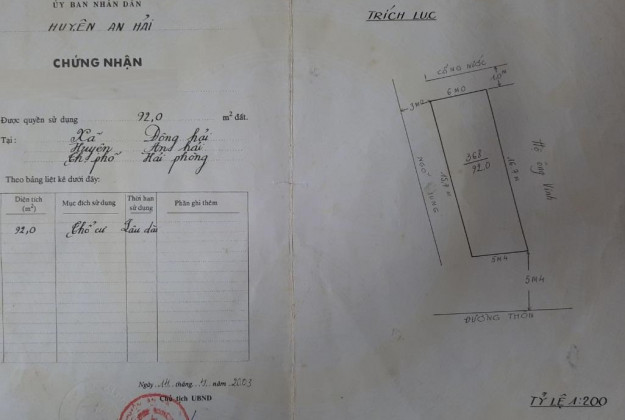 ỦY BAN NHÂN DÂN
HUYỆN AN HẢI
CHỨNG NHẬN
Được quyền sử dụng 92,0 m² đất.
Tại: Xã Đông hải
Huyện An hải
Th phố Hải phòng
Theo bảng liệt kê dưới đây:
Diện tích (m²) Mục đích sử dụng Thời hạn sử dụng Phần ghi thêm
92,0 Thổ cư Lâu dài
Ngày 11 tháng 11 năm 2003
Chủ tịch UBND
TRÍCH LỤC
CỐNG NƯỚC
6M0
3M2
368
92.0
NGÕ
Hộ ông Vinh
5M4
5M4
ĐƯỜNG THÔN
TỶ LỆ 1:200